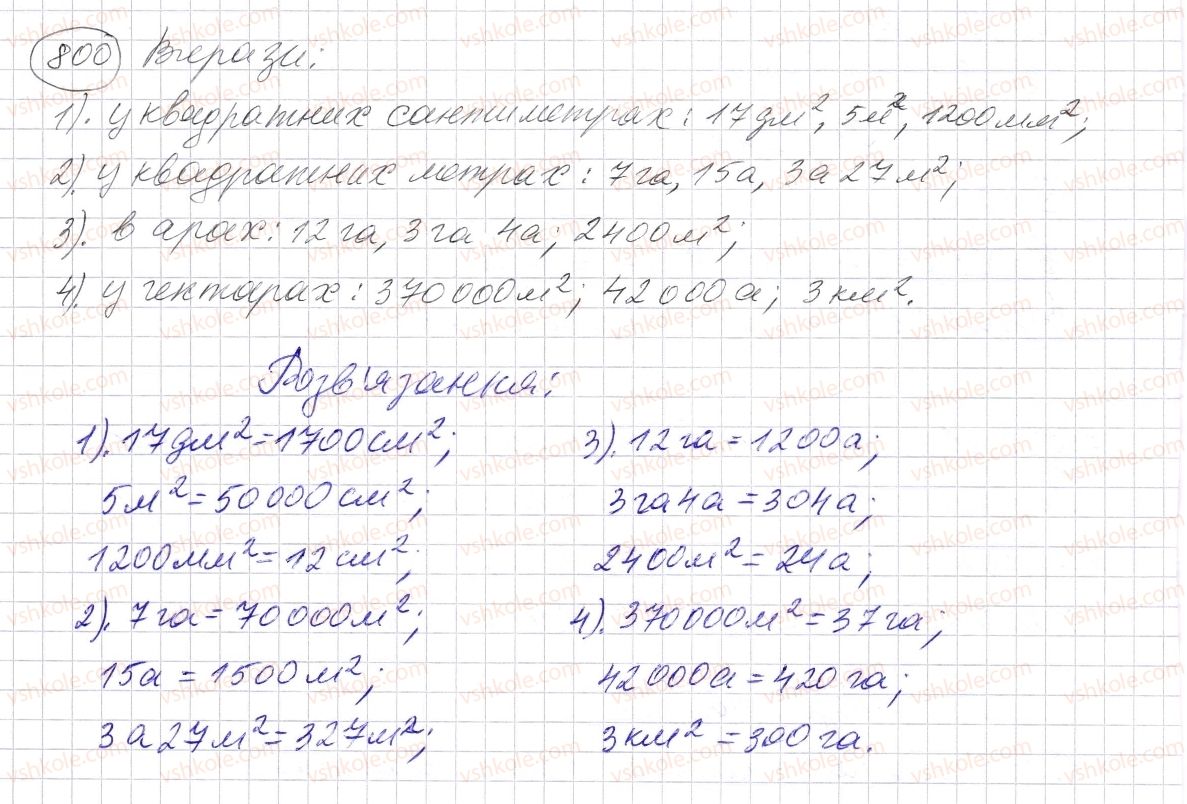 800 Вирази:
1). у квадратних сантиметрах: 17дм², 5м², 1200мм²;
2). у квадратних метрах: 7га, 15а, 3а 27м²;
3). в арах: 12га, 3га 4а; 2400м²;
4). у гектарах: 370000м²; 42000а; 3км².
Розв'язання:
1). 17дм²=1700см²;
5м²=50000см²;
1200мм²=12см²;
2). 7га=70000м²;
15а=1500м²;
3а27м²=327м²;
3). 12га=1200а;
3га4а=304а;
2400м²=24а;
4). 370000м²=37га;
42000а=420га;
3км²=300га.